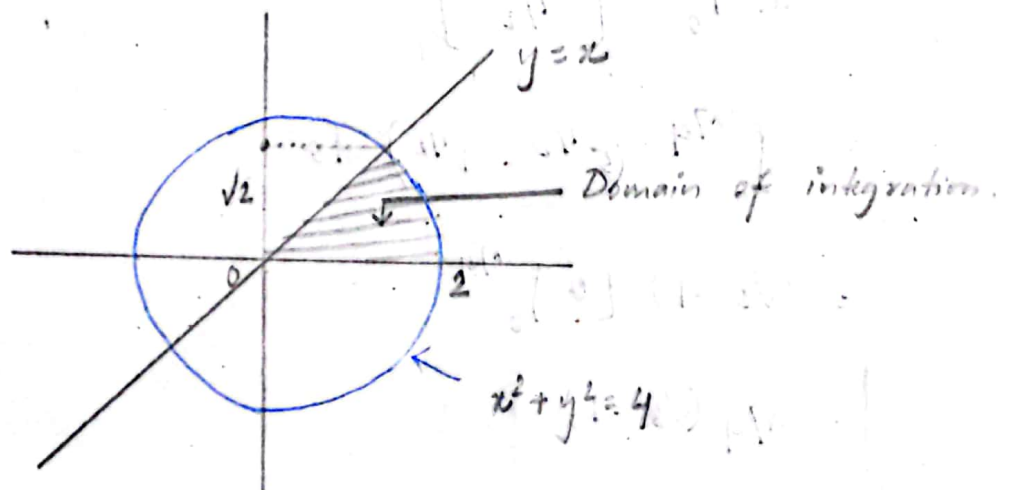 y = x
√2
Domain of integration.
0
2
x² + y² = 4